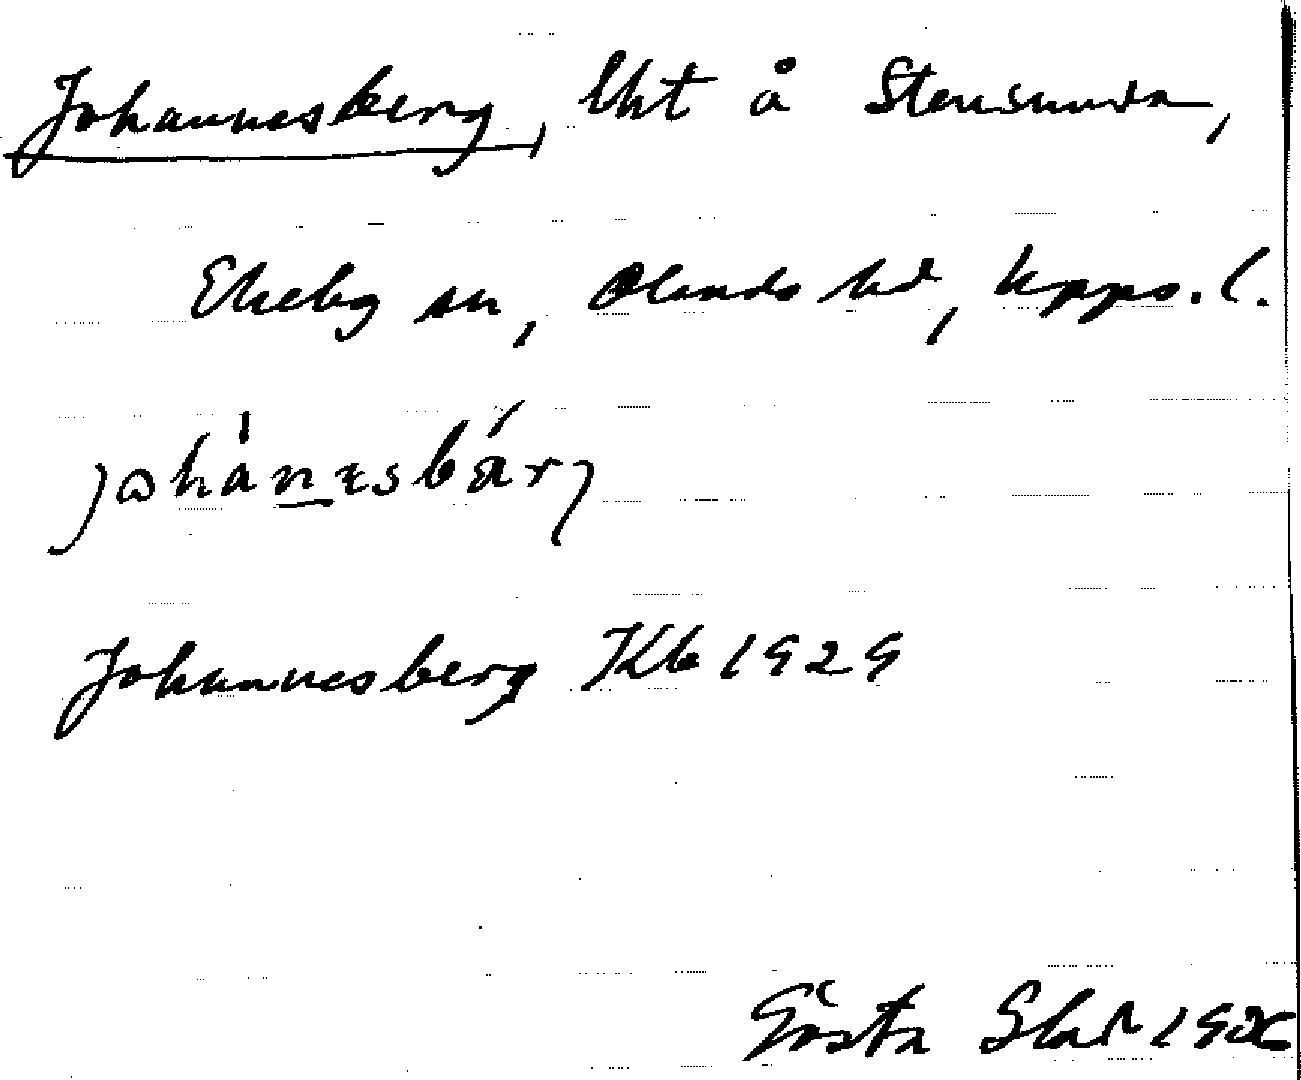 Johannesberg, lht å Stensunda,
Ekeby sn, Olands hd, Upps. l.
johànesbárj
Johannesberg Kb 1929
Gösta